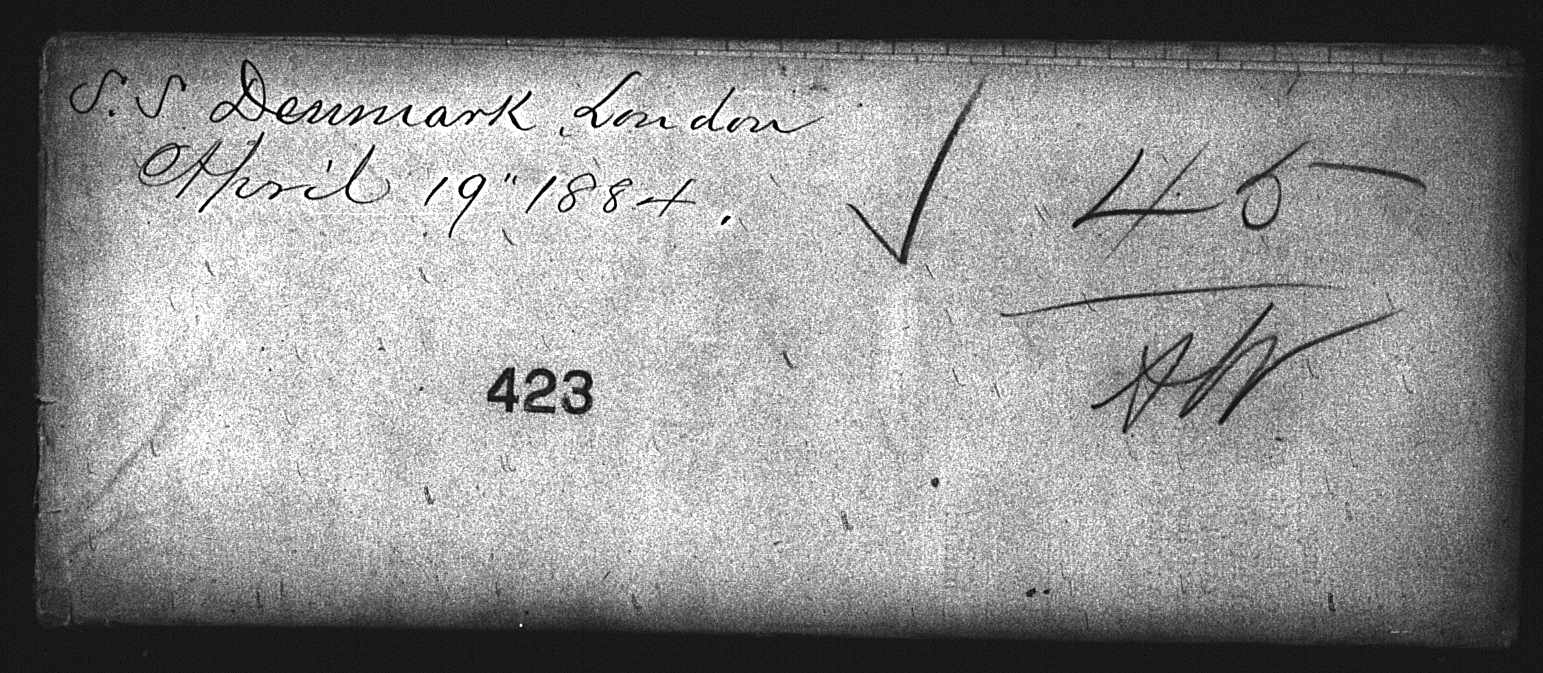 S.S Denmark, London
April 19" 1884.
45
423